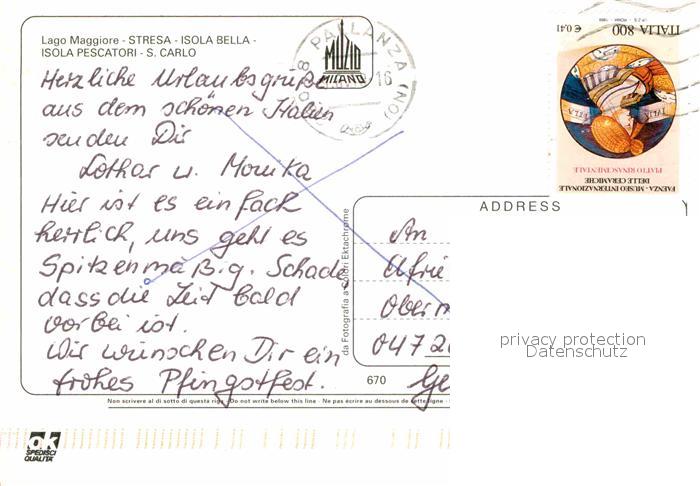 Lago Maggiore - STRESA - ISOLA BELLA -
ISOLA PESCATORI - S. CARLO
MUZIO
MILANO
PALLANZA (NO)
16
€ 0,41
ITALIA 800
FAENZA - MUSEO INTERNAZIONALE
DELLE CERAMICHE
PIATTO RINASCIMENTALE
Herzliche Urlaubsgrüße
aus dem schönen Italien
senden Dir
Lothar u. Monika
Hier ist es einfach
herrlich, uns geht es
Spitzenmäßig. Schade,
dass die Zeit bald
vorbei ist.
Wir wünschen Dir ein
frohes Pfingstfest.
da Fotografia a Colori Ektachrome
ADDRESS
An
Oberm
0472
Ge
670
privacy protection
Datenschutz
Non scrivere al di sotto di questa riga - Do not write below this line - Ne pas écrire au dessous de cette ligne -
ok
SPEDISCI
QUALITÀ